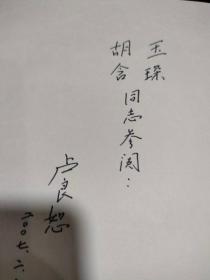 玉琛
胡含同志参阅：
卢良恕
二〇〇七.六.